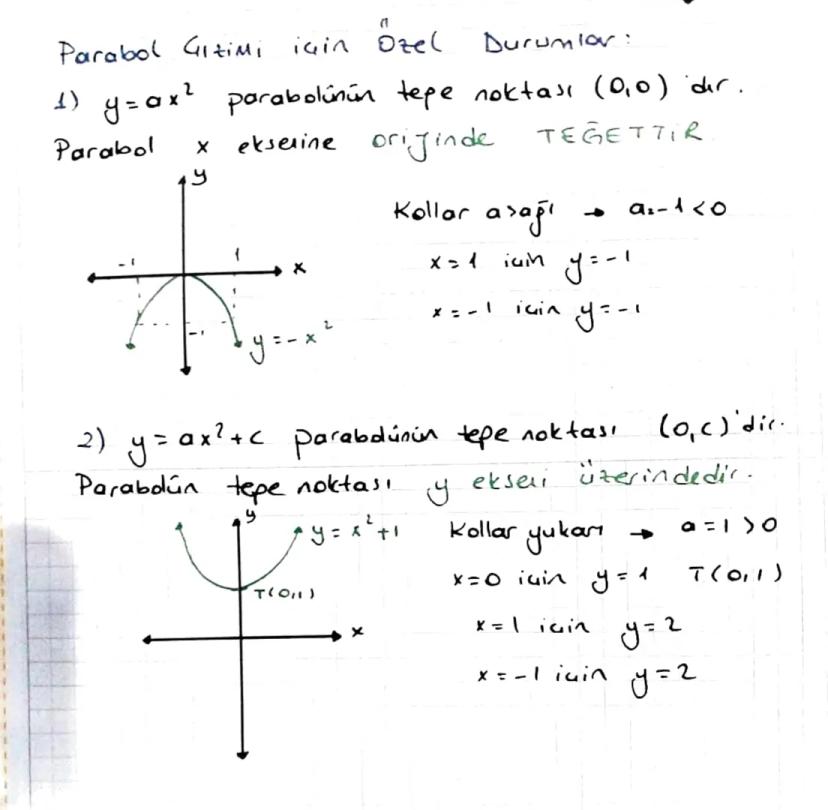 Parabol Çizimi için Özel Durumlar:
1) y=ax² parabolünün tepe noktası (0,0)'dır.
Parabol x eksenine orijinde TEĞETTİR
y
Kollar aşağı → a=-1<0
-1 1 x
x=1 için y=-1
x=-1 için y=-1
-1
y=-x²
2) y=ax²+c parabolünün tepe noktası (0,c)'dir.
Parabolün tepe noktası y ekseni üzerindedir.
y
y=x²+1 Kollar yukarı → a=1>0
T(0,1) x=0 için y=1 T(0,1)
x x=1 için y=2
x=-1 için y=2